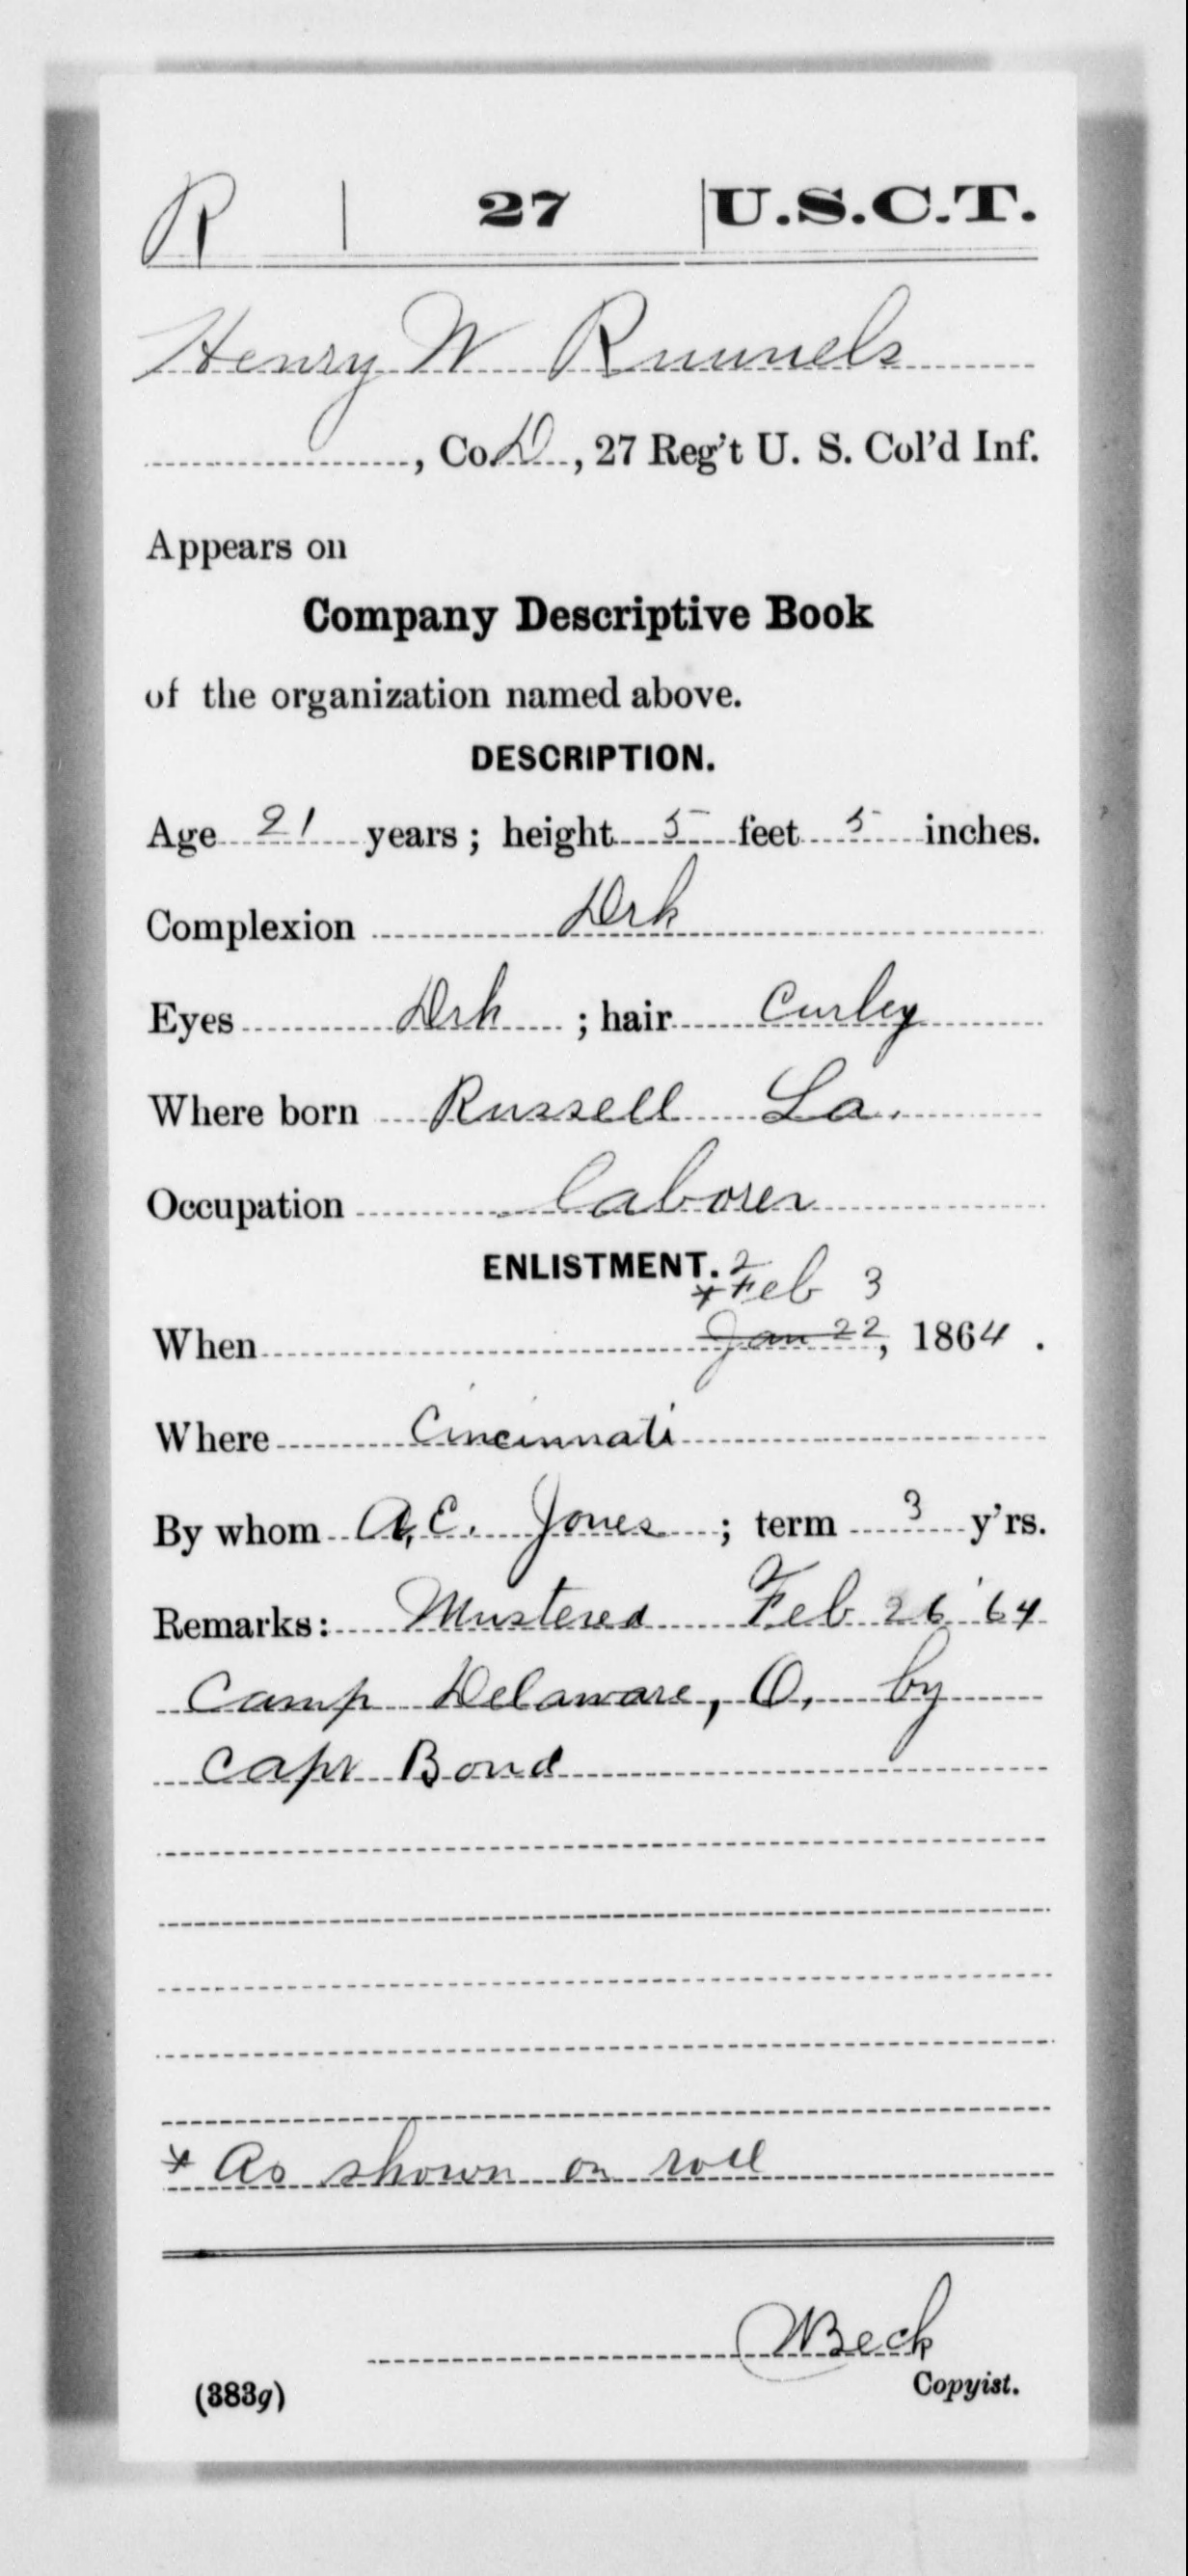 R | 27 | U.S.C.T.
Henry W Runnels
, Co. D, 27 Reg't U. S. Col'd Inf.
Appears on
Company Descriptive Book
of the organization named above.
DESCRIPTION.
Age 21 years; height 5 feet 5 inches.
Complexion Drk
Eyes Drk ; hair Curley
Where born Russell La.
Occupation laborer
ENLISTMENT.
* Feb 3
When Jan 22, 1864.
Where Cincinnati
By whom A. E. Jones ; term 3 y'rs.
Remarks: Mustered Feb 26 '64
Camp Delaware, O, by
Capt Bond
* As shown on roll
Beck
(383g) Copyist.